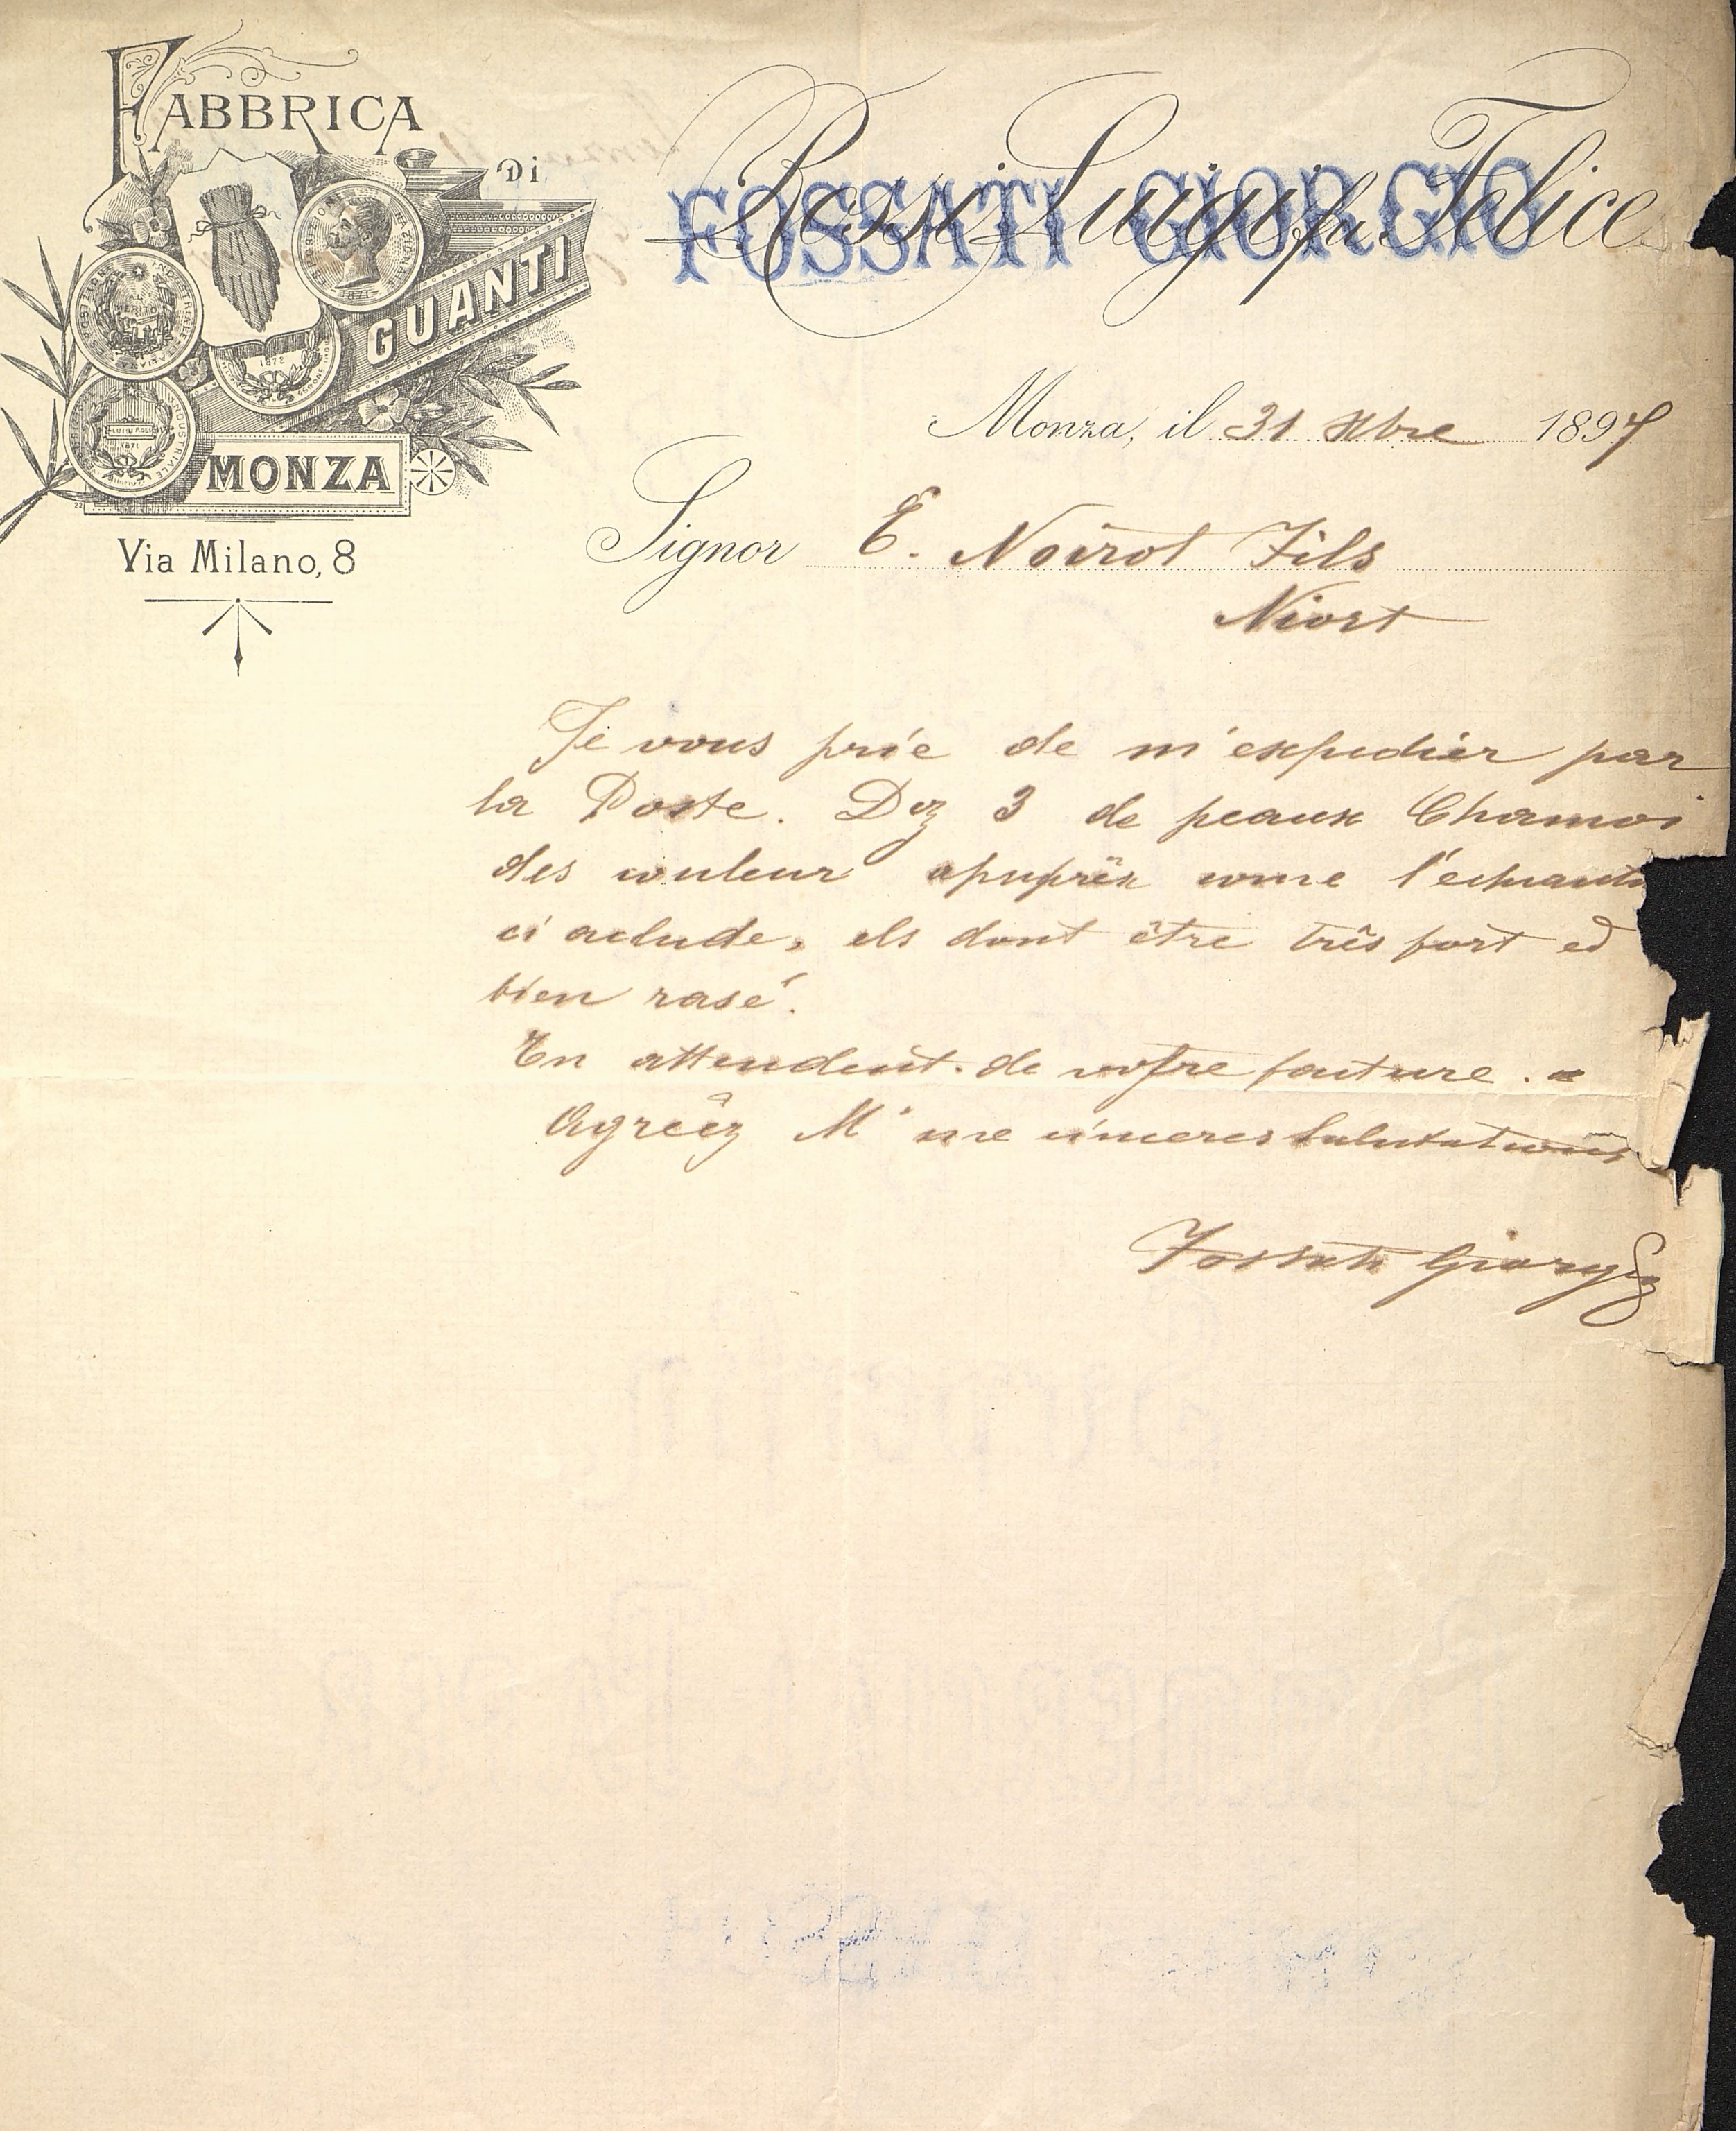 FABBRICA
DI
GUANTI
MONZA
Via Milano, 8
Rossi Luigi fu Felice
FOSSATI GIORGIO
Monza, il 31 Xbre 1897
Signor E. Noirot Fils
Niort
Je vous prie de m'expedier par
la Poste. Doz 3 de peaux Chamoi
des couleur apuprèx come l'echanti
ci aclude, els dont être três fort ed
bien rasé.
En attendent. de vosre facture.
Agreèz M. me sinceres Salutations
Fossati Giorgio